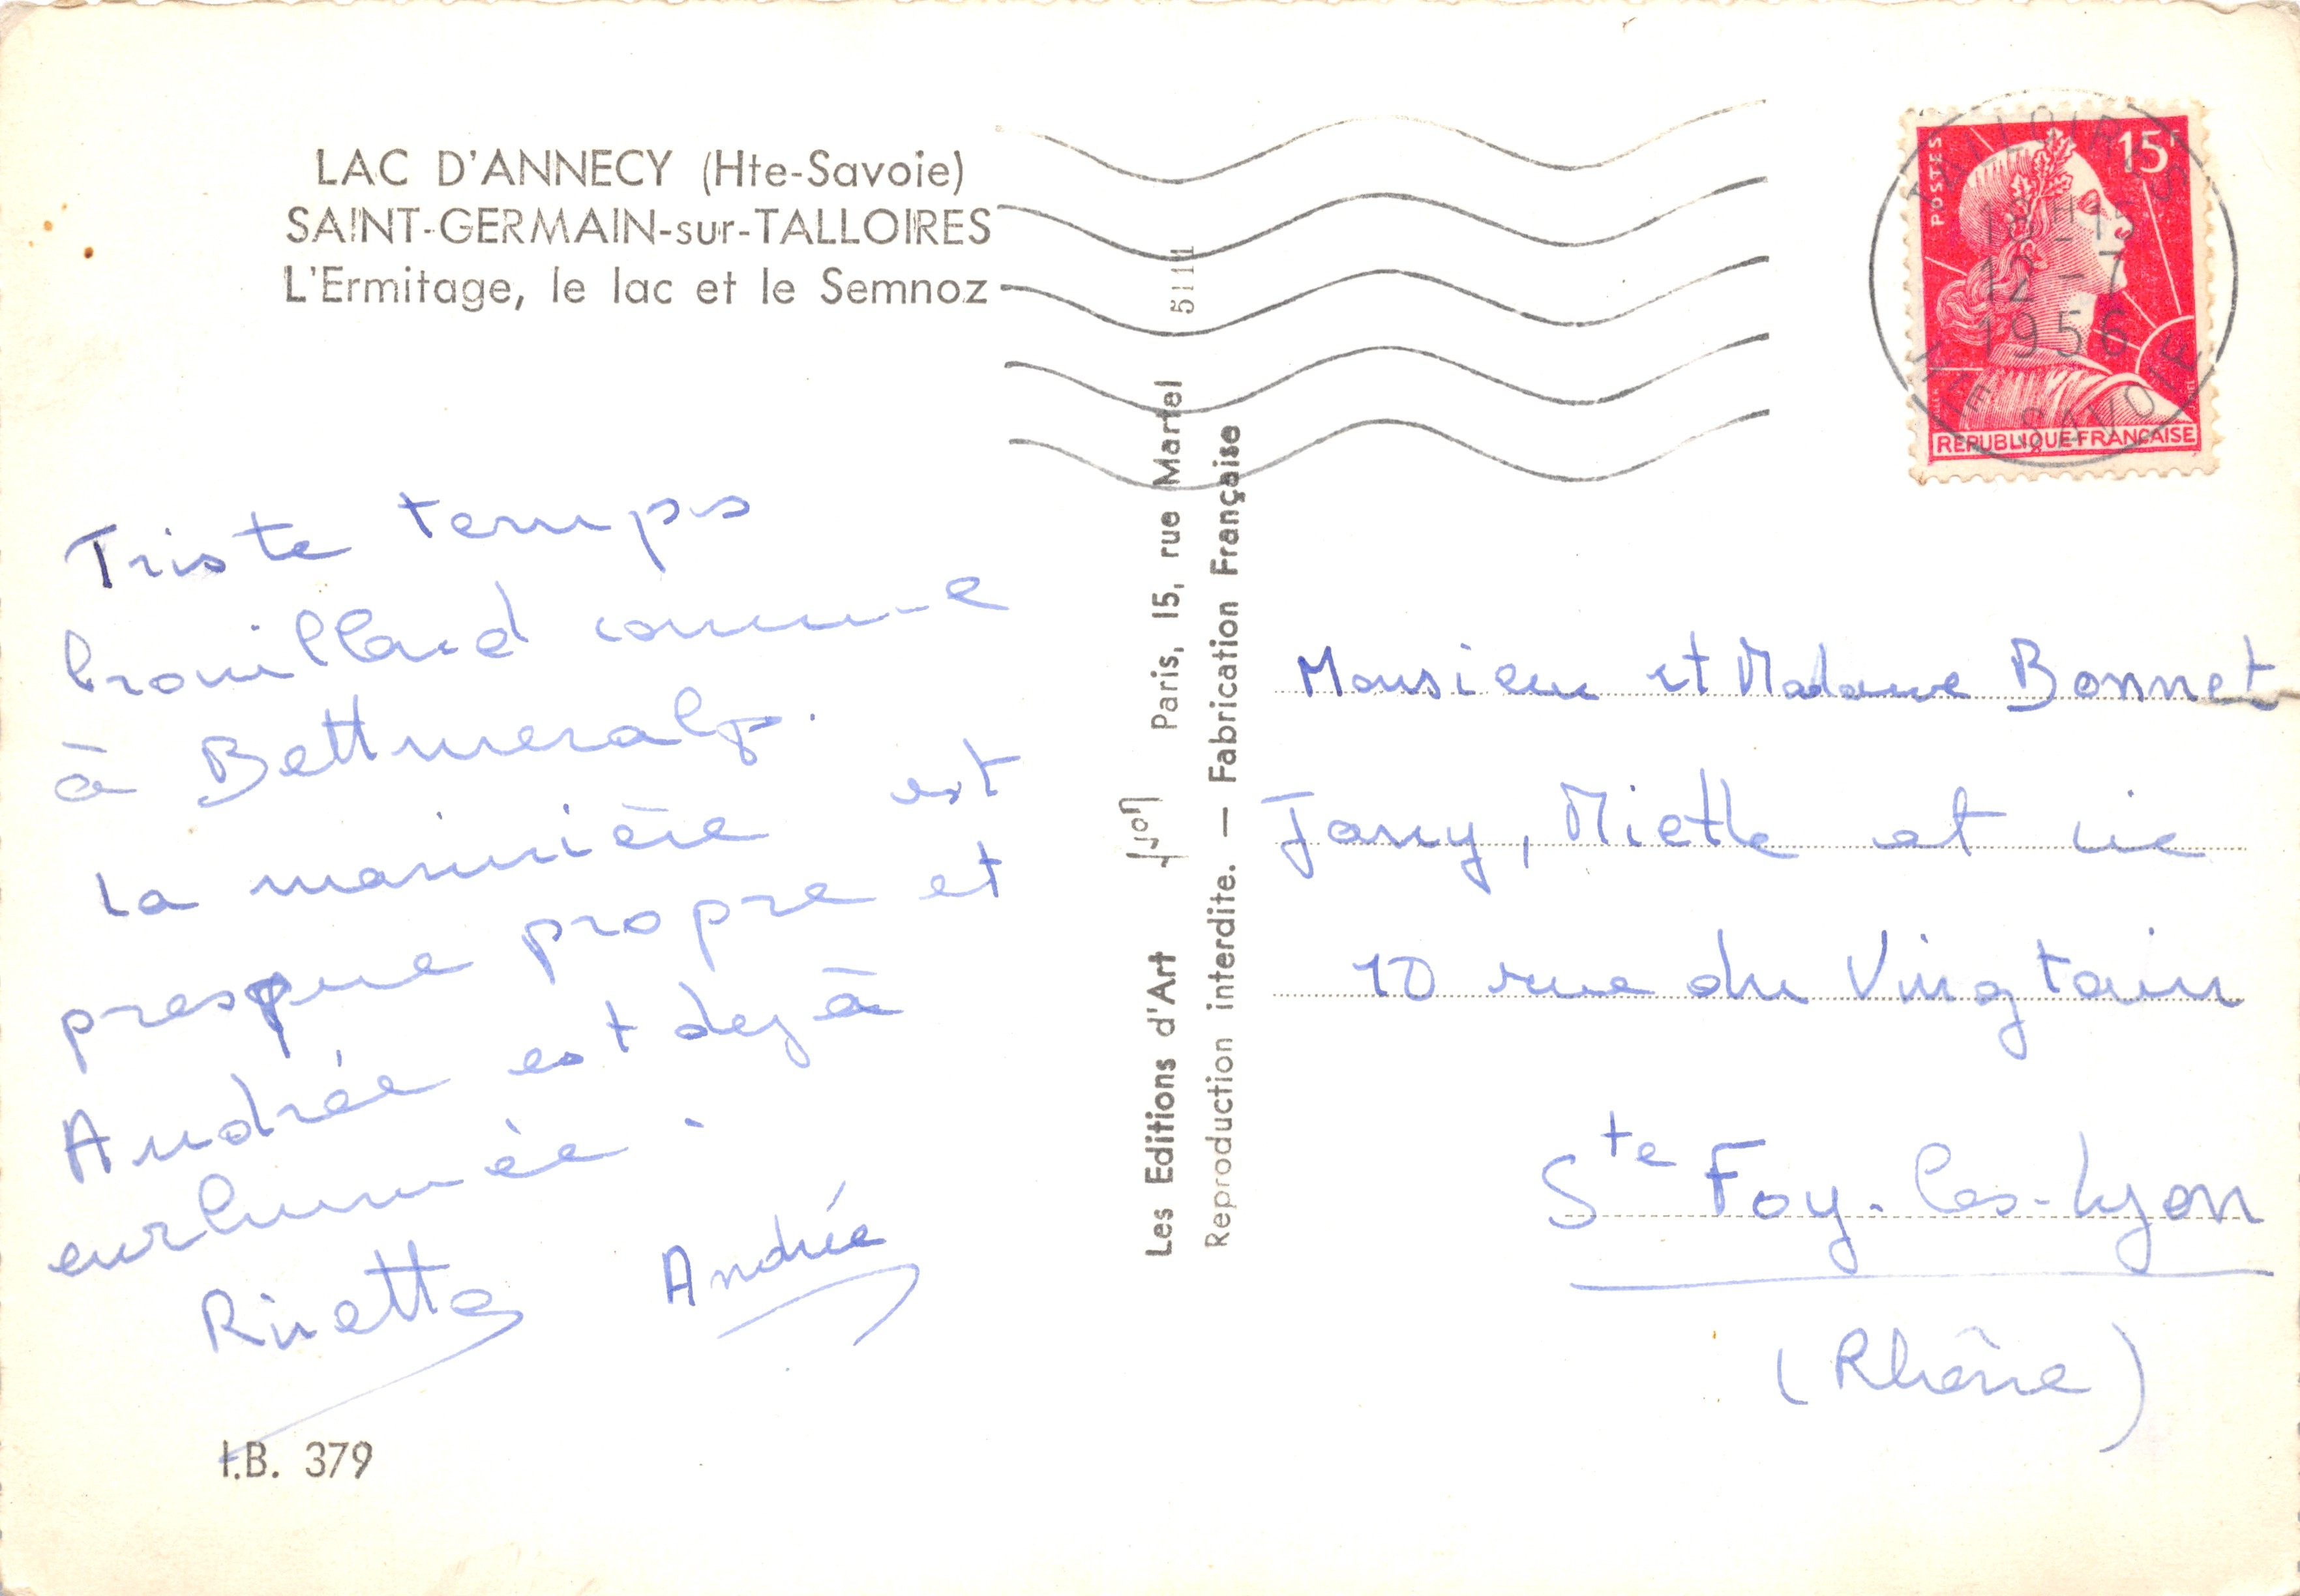 LAC D'ANNECY (Hte-Savoie)
SAINT-GERMAIN-sur-TALLOIRES
L'Ermitage, le lac et le Semnoz
Triste temps
brouillard comme
à Bettmeralp.
La marinière est
presque propre et
Andrée est dejà
enrhumée.
Rirette Andrée
I.B. 379
Les Editions d'Art Yvon Paris, 15, rue Martel 5111
Reproduction interdite. — Fabrication Française
POSTES
15F
REPUBLIQUE FRANÇAISE
TALLOIRES
18H15
12-7
1956
HTE SAVOIE
Monsieur et Madame Bonnet
Jany, Miette et cie
10 rue du Vingtain
Ste Foy-les-Lyon
(Rhône)